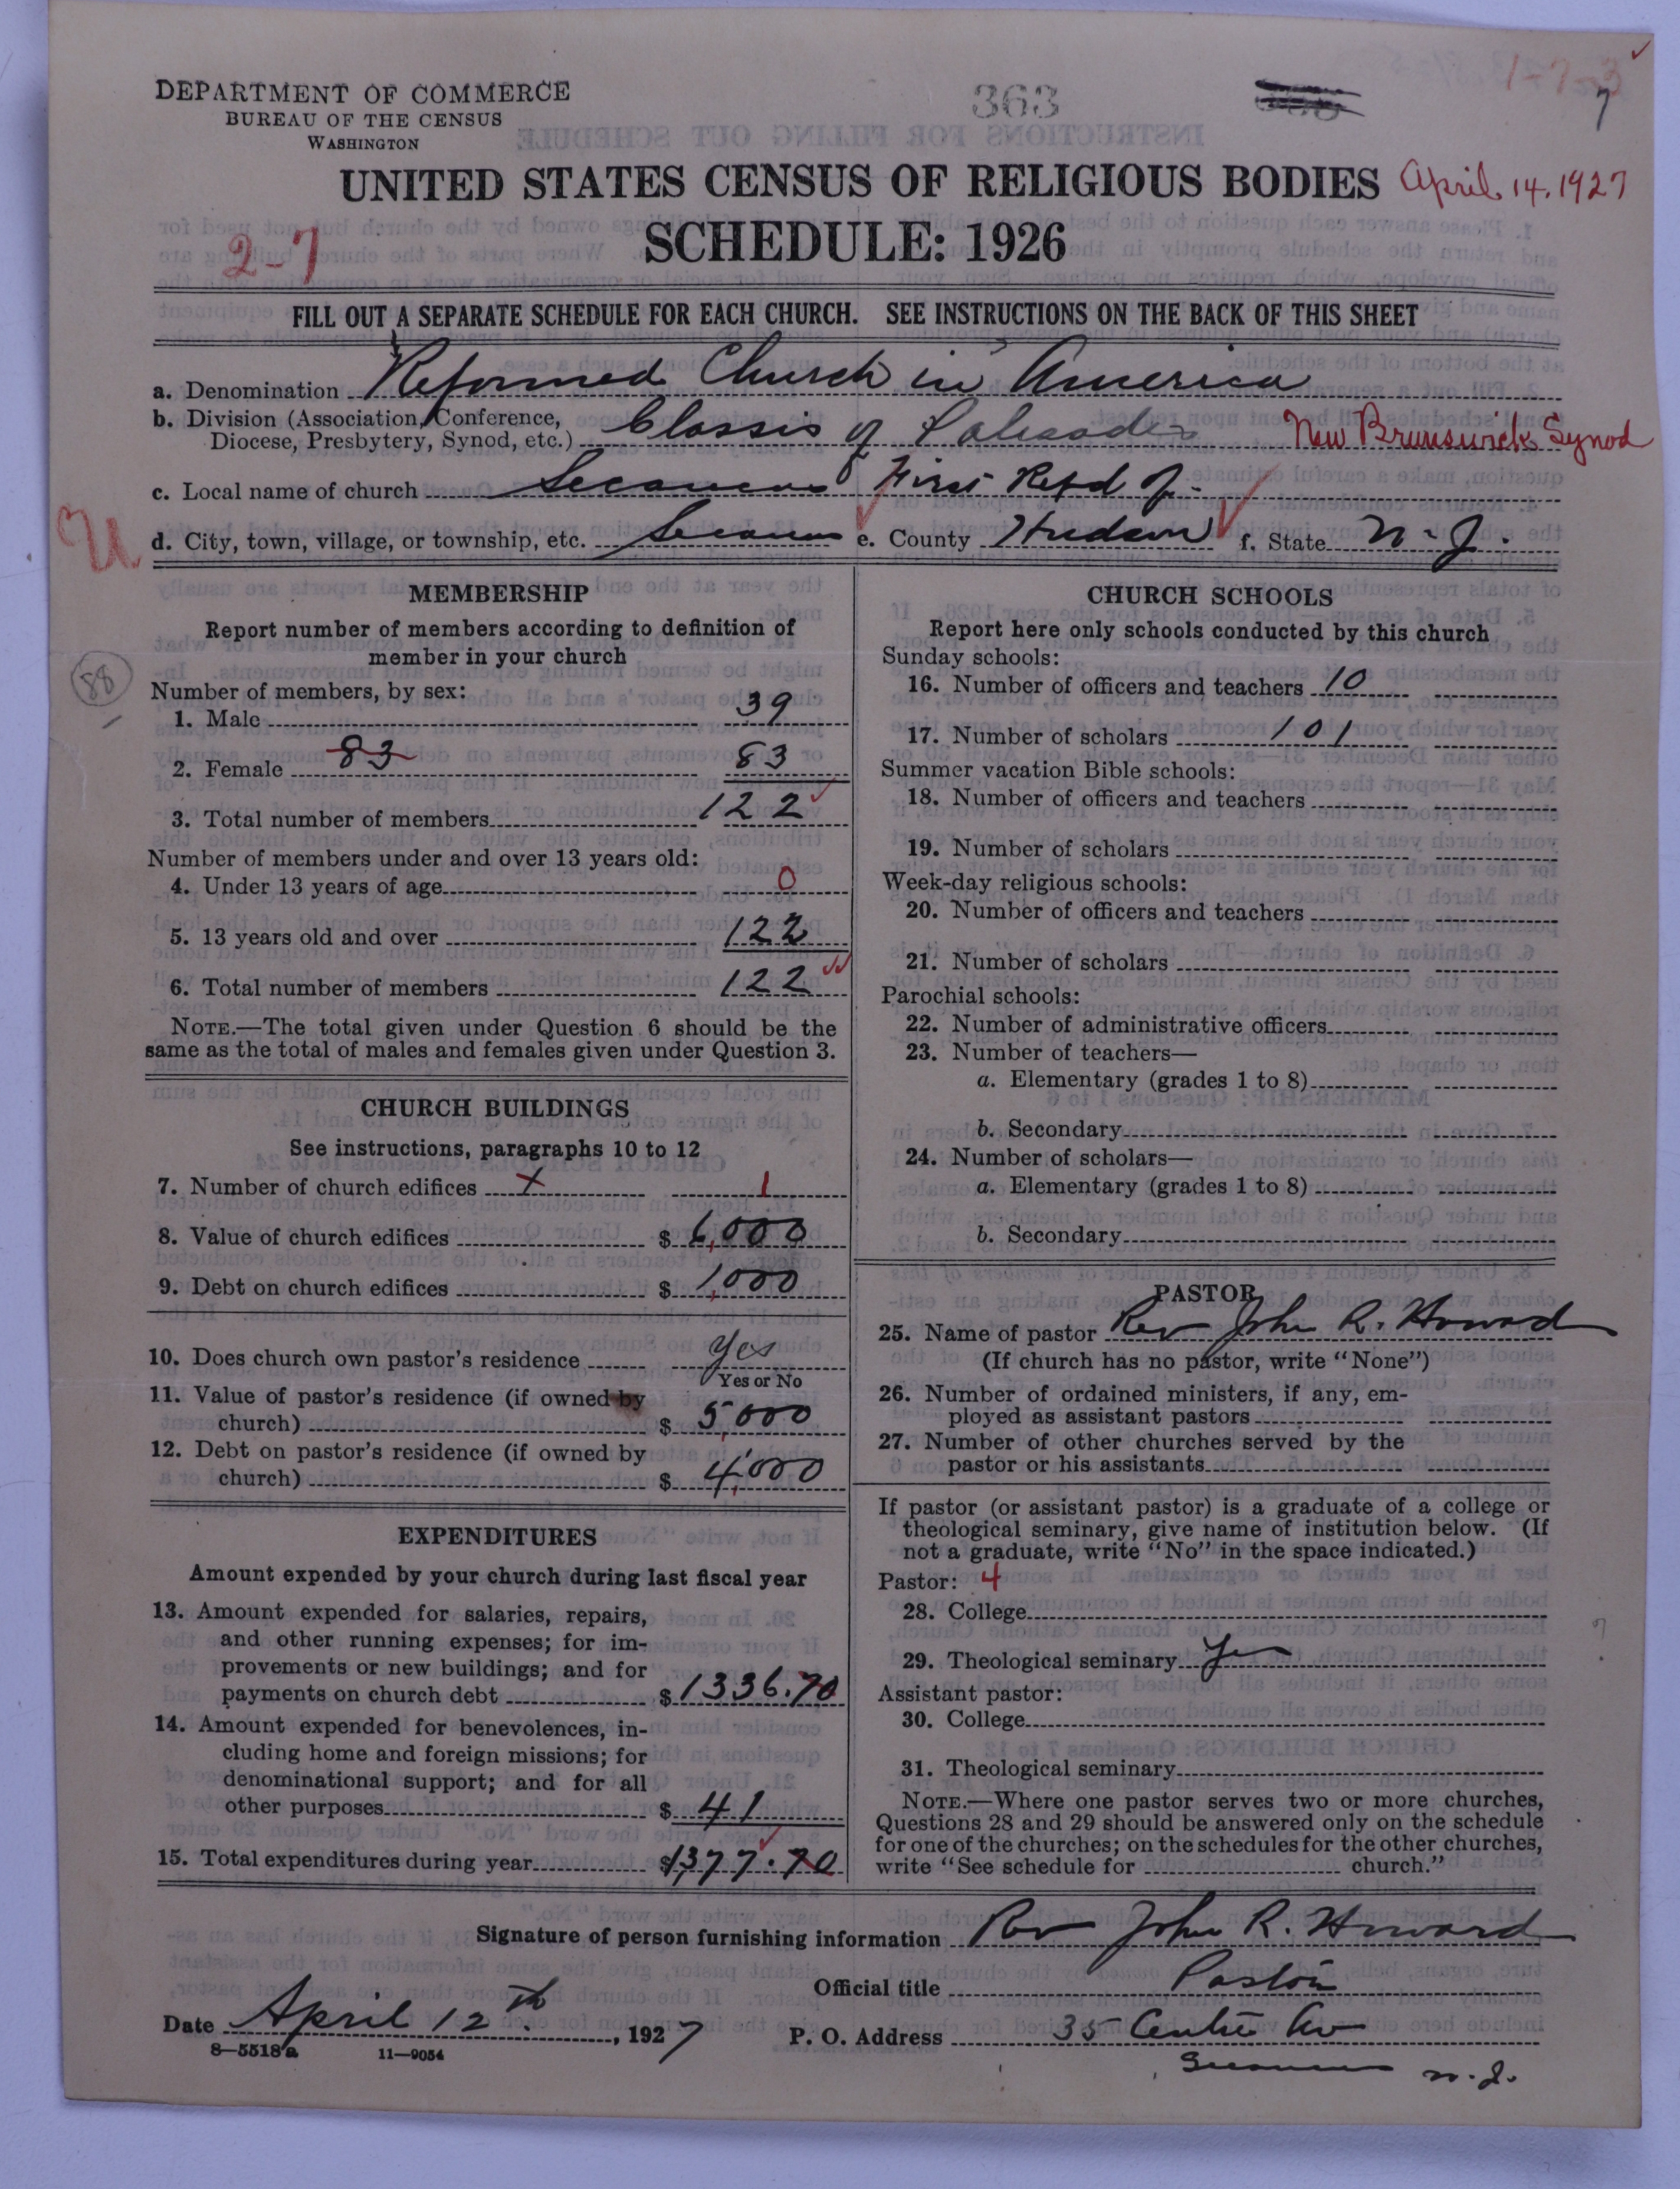 DEPARTMENT OF COMMERCE
BUREAU OF THE CENSUS
WASHINGTON
363
7
1-7-3
UNITED STATES CENSUS OF RELIGIOUS BODIES
April 14, 1927
SCHEDULE: 1926
2-7
FILL OUT A SEPARATE SCHEDULE FOR EACH CHURCH. SEE INSTRUCTIONS ON THE BACK OF THIS SHEET
a. Denomination Reformed Church in America
b. Division (Association, Conference,
Diocese, Presbytery, Synod, etc.) Classis of Palisades New Brunswick Synod
c. Local name of church Secaucus First Refd of
U
d. City, town, village, or township, etc. Secaucus e. County Hudson f. State N. J.
MEMBERSHIP
Report number of members according to definition of
member in your church
88
Number of members, by sex:
1. Male 39
2. Female 83 83
3. Total number of members 122
Number of members under and over 13 years old:
4. Under 13 years of age 0
5. 13 years old and over 122
6. Total number of members 122
NOTE.—The total given under Question 6 should be the
same as the total of males and females given under Question 3.
CHURCH BUILDINGS
See instructions, paragraphs 10 to 12
7. Number of church edifices x 1
8. Value of church edifices $ 6,000
9. Debt on church edifices $ 1,000
10. Does church own pastor's residence Yes
Yes or No
11. Value of pastor's residence (if owned by
church) $ 5,000
12. Debt on pastor's residence (if owned by
church) $ 4,000
EXPENDITURES
Amount expended by your church during last fiscal year
13. Amount expended for salaries, repairs,
and other running expenses; for im-
provements or new buildings; and for
payments on church debt $ 1336.70
14. Amount expended for benevolences, in-
cluding home and foreign missions; for
denominational support; and for all
other purposes $ 41
15. Total expenditures during year $1377.70
CHURCH SCHOOLS
Report here only schools conducted by this church
Sunday schools:
16. Number of officers and teachers 10
17. Number of scholars 101
Summer vacation Bible schools:
18. Number of officers and teachers
19. Number of scholars
Week-day religious schools:
20. Number of officers and teachers
21. Number of scholars
Parochial schools:
22. Number of administrative officers
23. Number of teachers—
a. Elementary (grades 1 to 8)
b. Secondary
24. Number of scholars—
a. Elementary (grades 1 to 8)
b. Secondary
PASTOR
25. Name of pastor Rev John R. Howard
(If church has no pastor, write "None")
26. Number of ordained ministers, if any, em-
ployed as assistant pastors
27. Number of other churches served by the
pastor or his assistants
If pastor (or assistant pastor) is a graduate of a college or
theological seminary, give name of institution below. (If
not a graduate, write "No" in the space indicated.)
Pastor: 4
28. College
29. Theological seminary Yes
Assistant pastor:
30. College
31. Theological seminary
NOTE.—Where one pastor serves two or more churches,
Questions 28 and 29 should be answered only on the schedule
for one of the churches; on the schedules for the other churches,
write "See schedule for church."
Signature of person furnishing information Rev John R. Howard
Official title Pastor
Date April 12th, 1927 P. O. Address 35 Centre Av
8—5518a 11—9054
Secaucus N. J.